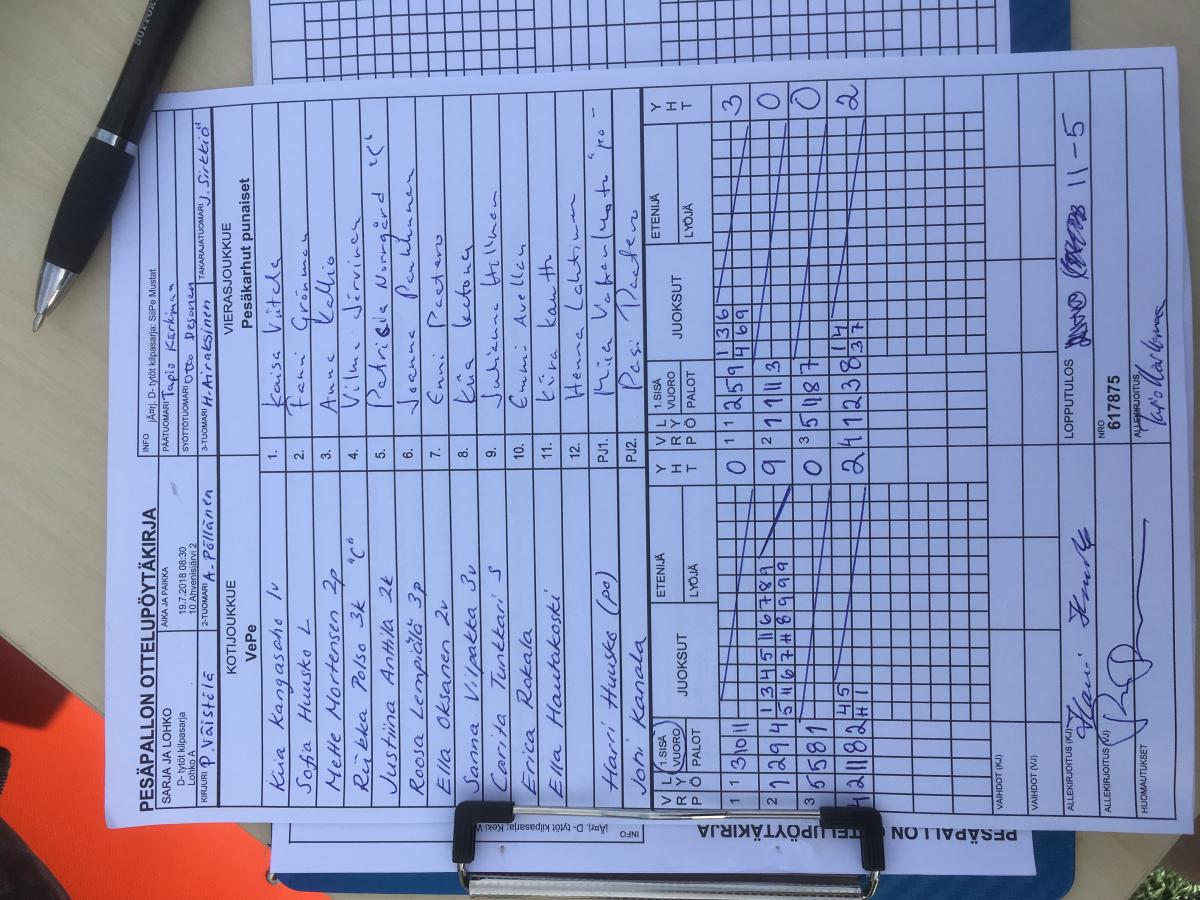 PESÄPALLON OTTELUPÖYTÄKIRJA
SARJA JA LOHKO
D- tytöt kilpasarja
Lohko A
AIKA JA PAIKKA
19.7.2018 08:30
10 Ahvenisjärvi 2
INFO jÄ¤rj. D- tytöt kilpasarja: SiiPe Mustat
PÄÄTUOMARI Tapio Kärkimaa
SYÖTTÖTUOMARI Otto Desonen
KIRJURI P. Väistölä
2-TUOMARI A. Pöllänen
3-TUOMARI H. Airaksinen
TAKARAJATUOMARI J. Sirkkiö
KOTIJOUKKUE
VePe
VIERASJOUKKUE
Pesäkarhut punaiset
Kiia Kangasaho 1v
1. Kaisa Viitala
Sofia Huusko L
2. Fani Grönman
Mette Mortensen 2p
3. Anna Kallio
Riikka Polso 3k "C"
4. Vilma Järvinen
Justiina Anttila 2k
5. Patricia Norrgård "C"
Roosa Lempiälä 3p
6. Joanna Pauhunen
Ella Oksanen 2v
7. Enni Paatero
Sanna Vilpakka 3v
8. Kiia Katona
Carita Tunkkari S
9. Julianna Hillman
Erica Rakala
10. Emmi Avellan
Ella Hautakoski
11. Kira Kautto
12. Henna Lahtinen
Harri Huusko (po)
PJ1. Miia "po"
Joni Kanala
PJ2. Pasi Paatero
V R P L Y Ö 1.SISÄ VUORO PALOT JUOKSUT ETENIJÄ LYÖJÄ Y H T
V R P L Y Ö 1.SISÄ VUORO PALOT JUOKSUT ETENIJÄ LYÖJÄ Y H T
1 1 3 10 11 0
1 1 2 5 9 1 3 6 3
4 6 9
2 7 2 9 4 1 3 4 5 11 6 7 8 9 9
5 11 6 7 # 8 9 9 9
2 1 7 11 1 3 0
3 5 5 8 1 0
3 5 11 8 7 0
4 2 11 8 2 4 5 2
# 1
4 1 2 3 8 1 4 2
3 7
VAIHDOT (KJ)
VAIHDOT (VJ)
ALLEKIRJOITUS (KJ)
LOPPUTULOS 11-5
ALLEKIRJOITUS (VJ)
NRO
617875
HUOMAUTUKSET
ALLEKIRJOITUS
INFO
jÄ¤rj. D- tytöt kilpasarja: Keki
PESÄPALLON OTTELUPÖYTÄKIRJA